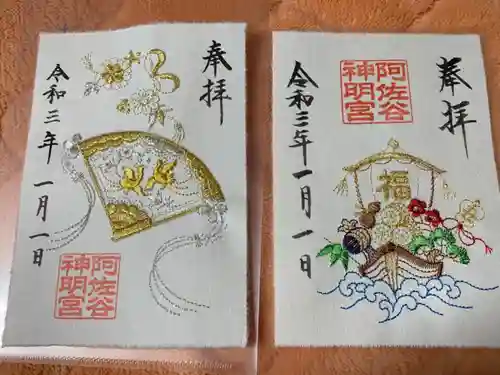 奉拝
令和三年 一月一日
阿佐谷
神明宮
奉拝
阿佐谷
神明宮
福
令和三年一月一日